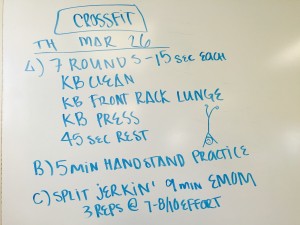 CROSSFIT
TH MAR 26
A) 7 ROUNDS - 15 SEC EACH
KB CLEAN
KB FRONT RACK LUNGE
KB PRESS
45 SEC REST
B) 5 MIN HANDSTAND PRACTICE
C) SPLIT JERKIN' 9 MIN EMOM
3 REPS @ 7-8/10 EFFORT